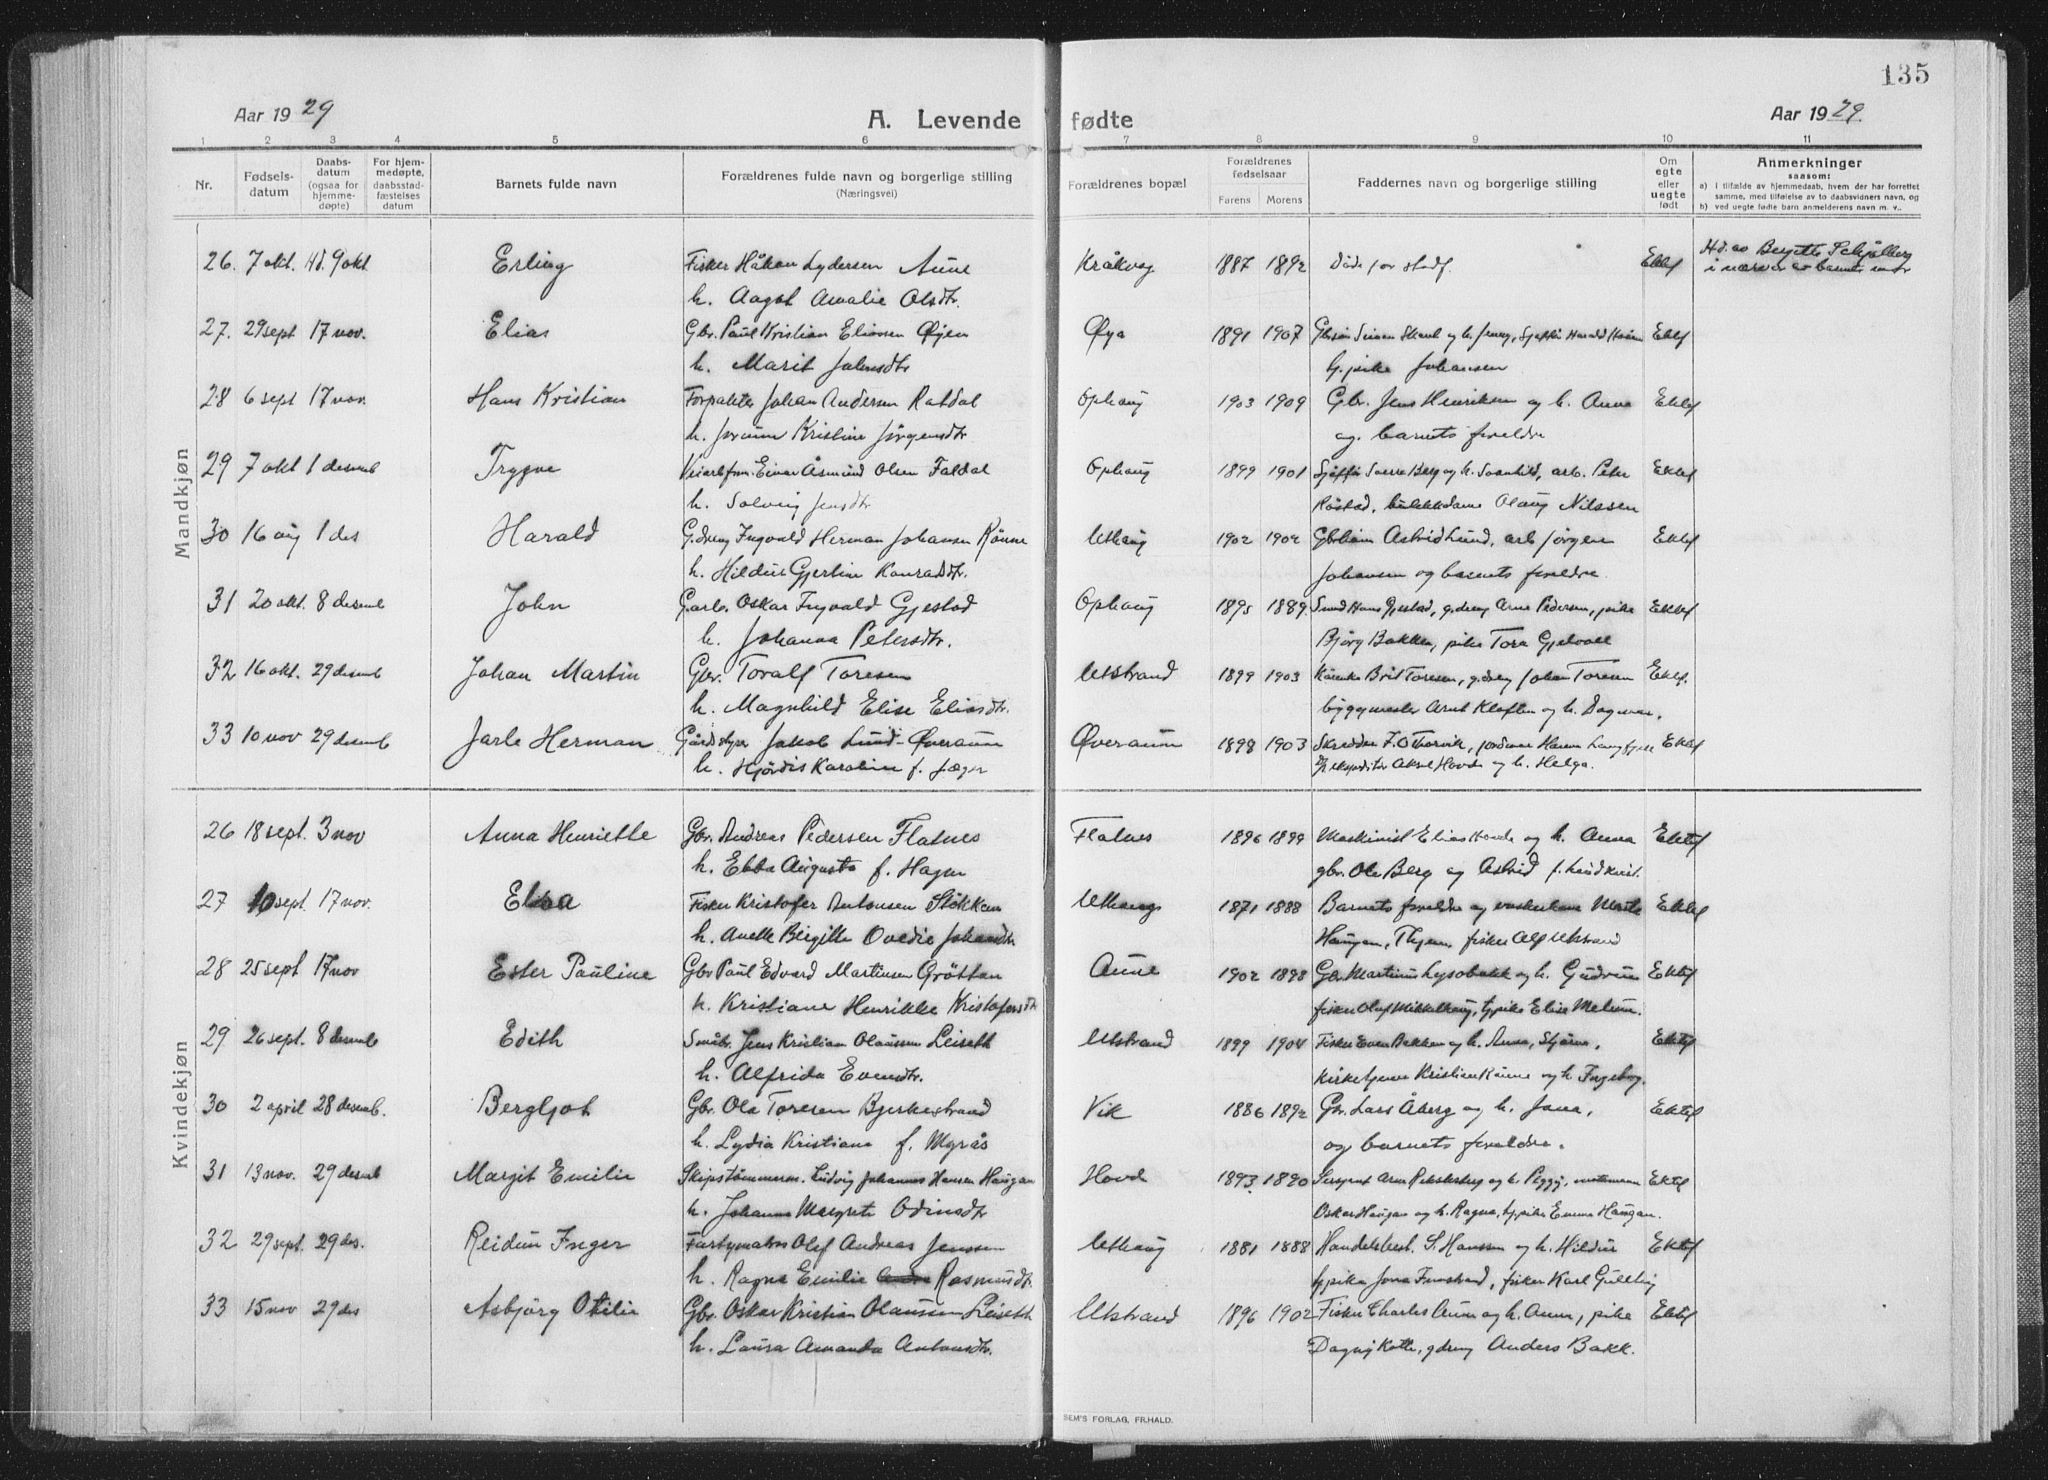 135
Aar 1929
A. Levende fødte
Aar 1929.
1 2 3 4 5 6 7 8 9 10 11
Nr.
Fødsels-
datum
Daabs-
datum
(ogsaa for
hjemme-
døpte)
For hjem-
medøpte,
daabsstad-
fæstelses
datum
Barnets fulde navn
Forældrenes fulde navn og borgerlige stilling
(Næringsvei)
Forældrenes bopæl
Forældrenes
fødselsaar
Farens Morens
Faddernes navn og borgerlige stilling
Om
egte
eller
uegte
født
Anmerkninger
saasom:
a) i tilfælde av hjemmedaab, hvem der har forrettet
samme, med tilføielse av to daabsvidners navn, og
b) ved uegte fødte barn anmelderens navn m. v..
Mandkjøn
26. 7 okt. Hd. 9 okt Erling Fisker Håkon Lydersen Aune Kråkvåg 1887 1892 Døde før stadf. Ektef Hd. av Birgitte Schjølberg
h. Aagot Amalie Olsdtr. i nærvær av barnets mor
27. 29 sept 17 nov. Elias Gbr. Paul Kristian Eliassen Øyen Øya 1891 1907 Ektef
h. Marit Johnsdtr Johansen
28 6 sept 17 nov. Hans Kristian Forpakter Johan Andersen Ratdal Ophaug 1903 1909 Gbr. Jens Henriksen og h. Anna Ektef
h. Jorunn Kristine Jørgensdtr og barnets foreldre
29 7 okt 1 desemb Trygve Einar Åsmund Olsen Faldal Ophaug 1899 1901 Sverre Berg og h. Svanhild, arb. Peter Ektef
h. Solveig Jensdtr Røstad, butikkdame Olaug Nilssen
30 16 aug 1 des Harald G.dreng Ingvald Herman Johansen Rønne Uthaug 1902 1902 Astrid Lund, arb Jørgen Ektef
h. Hildur Gjertine Konradsdtr. Johansen og barnets foreldre.
31 20 okt. 8 desemb John G.arb. Oskar Ingvald Gjestad Ophaug 1895 1889. Hans Gjestad, g.dreng Arne Pedersen, pike Ektef
h. Johanna Petersdtr. Bjørg Bakken, pike Tora Gjelvold
32 16 okt. 29 desemb Johan Martin Gbr. Toralf Toresen Utstrand 1899 1903 Brit Toresen, g.dreng Johan Toresen Ektef.
h. Magnhild Elise Eliasdtr. byggmester Arnt Kloften og h. Dagmar.
33 10 nov 29 desemb Jarle Herman Gårdsstyrer Jakob Lund-Øveraune Øveraune 1898 1903 Skredder F. O Thorvik, jordmor Ektef
h. Hjørdis Karoline f. Jæger ekspeditør Aksel Hovde og h. Helga.
Kvindekjøn
26 18 sept. 3 nov Anna Henriette Gbr. Andreas Pedersen Flatnes Flatnes 1896 1899 Maskinist Elias Hovde og h. Anna Ektef
h. Ebba Augusta f. Hagen gbr. Ole Berg og Astrid f. Lindkvist.
27 10 sept. 17 nov. Elsa Fisker Kristofer Antonsen Stokkan Uthaug 1871 1888 Barnets foreldre og Ektef
h. Anette Birgitte Ovedie Johansdtr Haugan, fisker Alf Utstrand
28 25 sept 17 nov Ester Pauline Gbr Paul Edvard Martinsen Grøttan Aune 1902 1898 Gbr. Martinus Lysobakk og h. Gudrun Ektef
h. Kristiane Henrikke Kristofersdtr fisker Olaf Mikkelhaug, tj.pike Elise Melum.
29 26 sept. 8 desemb Edith Småbr. Jens Kristian Olaussen Leiseth Utstrand 1899 1904 Fisker Even Bakken og h. Anna, Stjørna, Ektef
h. Alfrida Evendtr. kirketjener Kristian Rønne og h Ingeborg.
30 2 april 28 desemb. Bergljot Gbr. Ole Toresen Bjerkestrand Vik 1886 1892 Gbr. Lars Åberg og h. Jona, Ektef
h. Lydia Kristiane f. Myrås og barnets foreldre.
31 13 nov. 29 desemb Margit Emilie Skipstømmerm. Ludvig Johannes Hansen Haugan Hovde 1893 1890 Sersjant Arne og h. Peggy, Ektef
h. Johanna Margrete Odinsdtr Oskar Haugan og h. Ragna, tj.pike Emma Haugan.
32 29 sept. 29 des. Reidun Inger Olaf Andreas Jenssen Uthaug 1881 1888 Handelsbest. S. Hanssen og h. Hildur Ektef
h. Ragna Emilie Rasmusdtr. tj.pike Jona fisker Karl Gulling
33 15 nov 29 des Asbjørg Otilie Gbr. Oskar Kristian Olaussen Leiseth Utstrand 1896 1902 Fisker Charles Aune og h. Anna, pike Ektef
h. Laura Amanda Antonsdtr. Dagny Kotte, g.dreng Anders Bakk.
SEM'S FORLAG, FR.HALD.